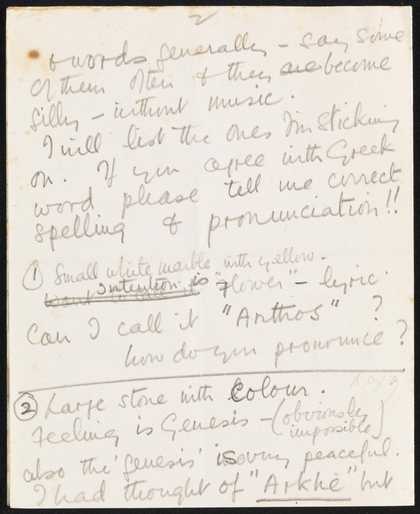 2
& words generally – say some
of them often & they are become
silly – without music.
I will list the ones I'm sticking
on. If you agree with Greek
word please tell me correct
spelling & pronunciation!!
① Small white marble with yellow.
intention is "Flower" – lyric.
Can I call it "Anthos" ?
how do you pronounce ?
② Large stone with Colour.
Feeling is Genesis – (obviously
impossible)
also the 'genesis' is very peaceful.
I had thought of "Arkhē" but